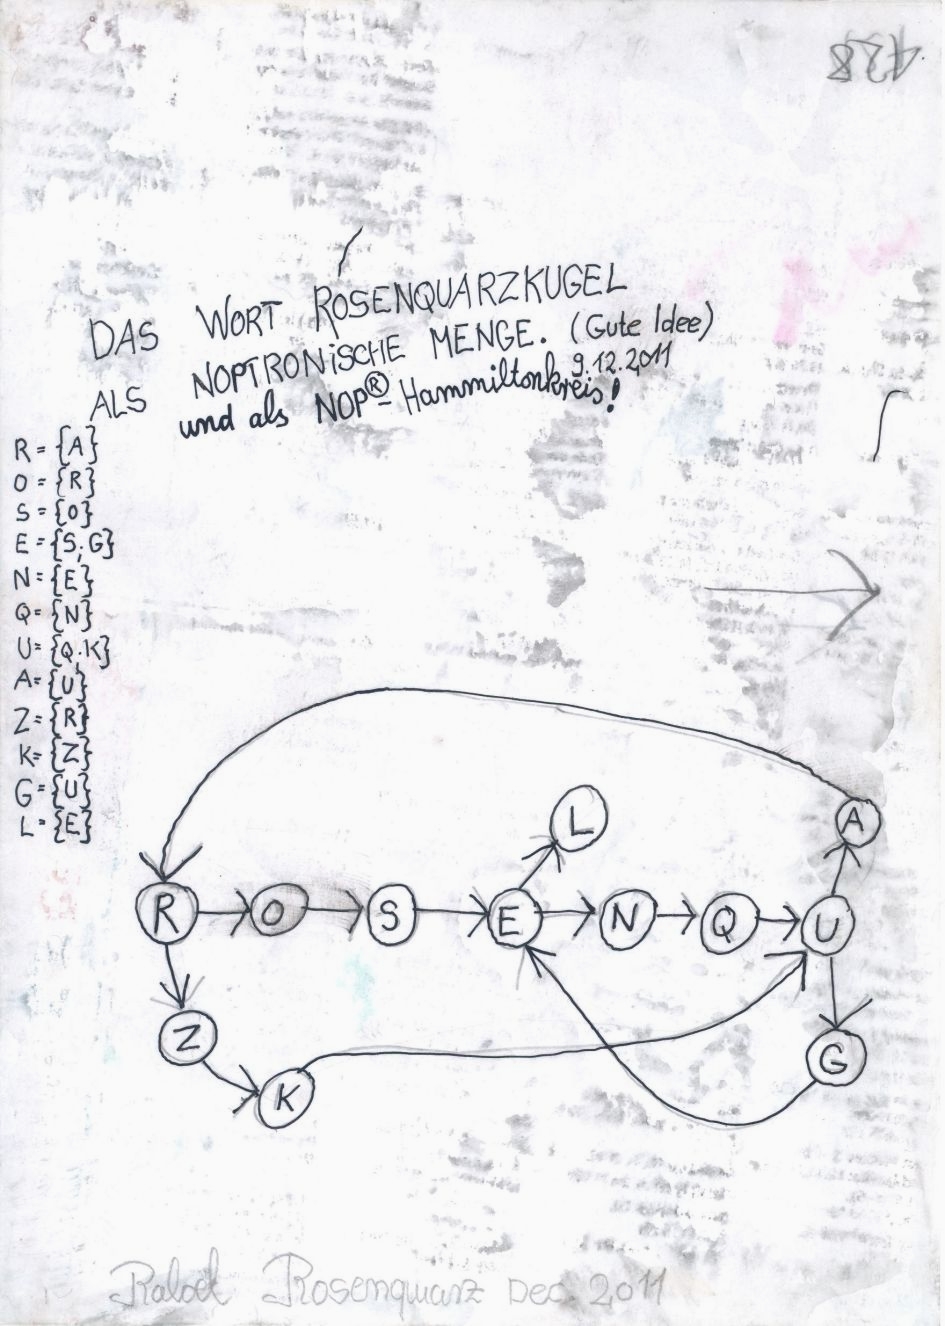 428
DAS WORT ROSENQUARZKUGEL
ALS NOPTRONiSCHE MENGE. (Gute Idee)
9.12.2011
und als NOP®- Hammiltonkreis!
R = {A}
O = {R}
S = {O}
E = {S, G}
N = {E}
Q = {N}
U = {Q, K}
A = {U}
Z = {R}
K = {Z}
G = {U}
L = {E}
L
A
R O S E N Q U
Z
K
G
Rosenquarz Dec. 2011